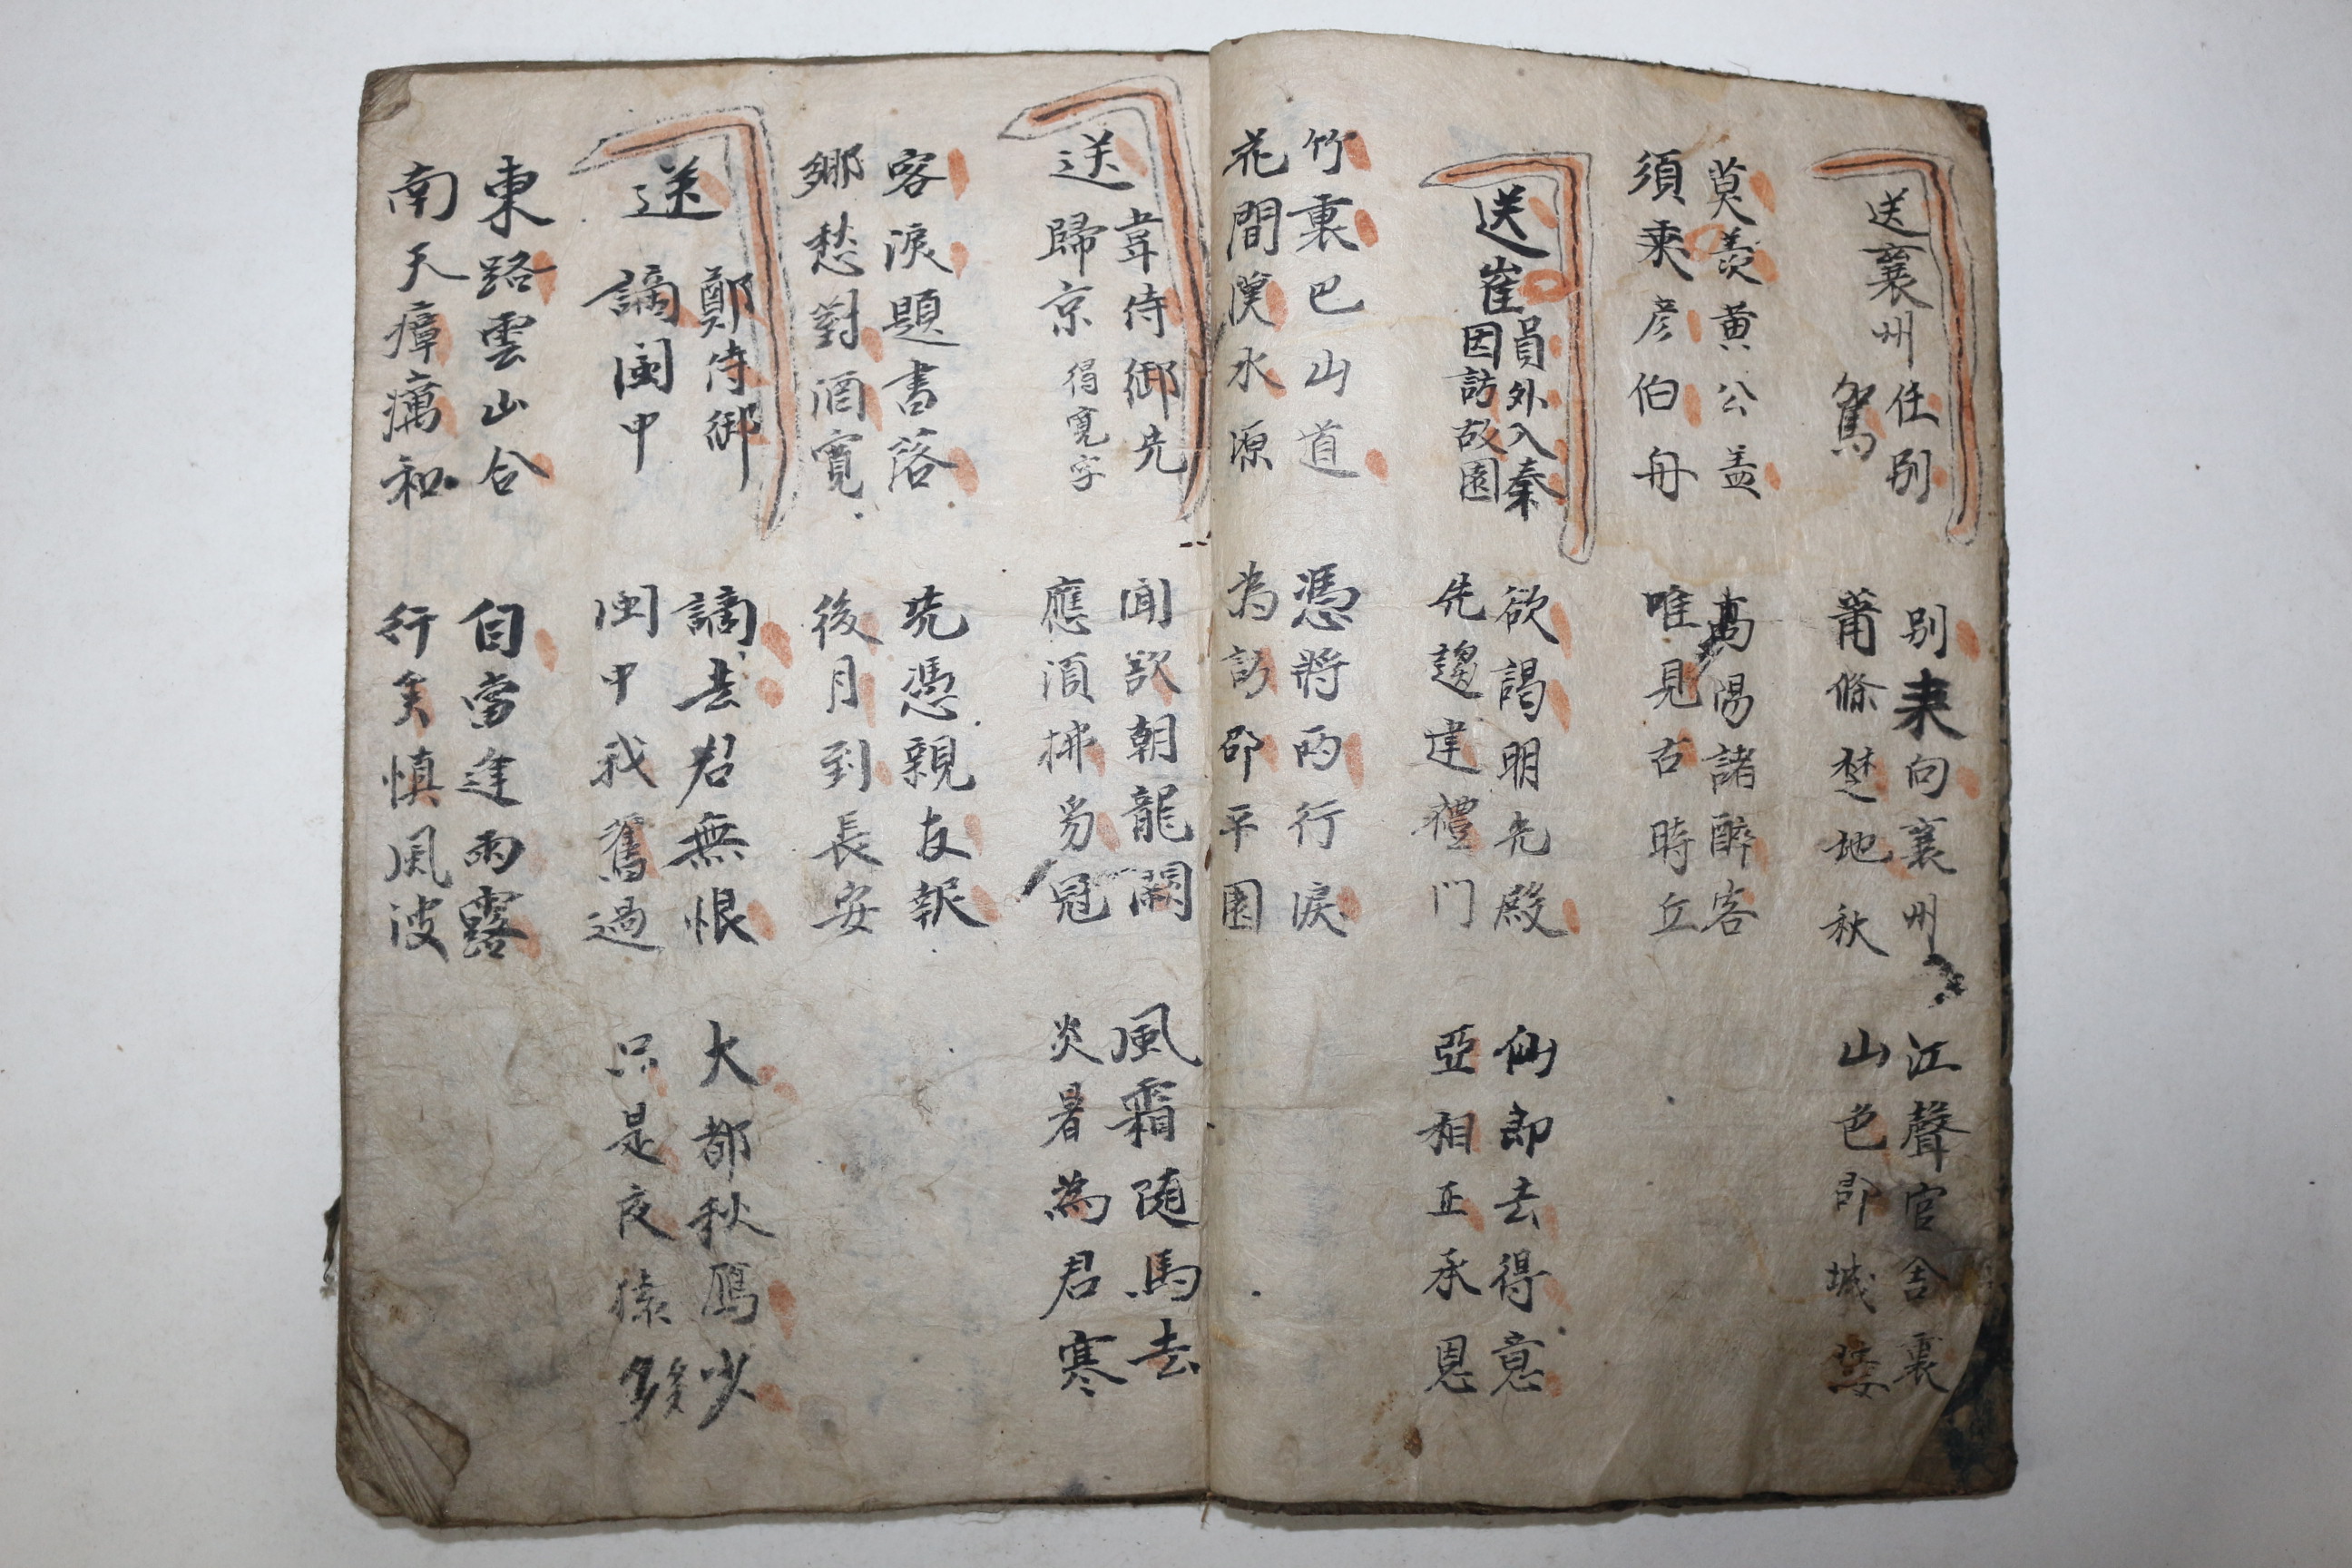 送襄州任別
駕
別来向襄州
蕭條楚地秋
江聲官舍裏
山色郡城樓
莫羨黃公盖
須乘彦伯舟
高陽諸醉客
唯見古時丘
送崔員外入秦
因訪故園
欲謁明光殿
先趨建禮門
仙郎去得意
亞相正承恩
竹裏巴山道
花間漢水源
憑將兩行淚
為訪邵平園
送韋侍御先
歸京得寬字
聞欲朝龍闕
應須拂豸冠
風霜隨馬去
炎暑為君寒
客淚題書落
鄉愁對酒寬
先憑親友報
後月到長安
送鄭侍御
謫閩中
謫去君無恨
閩中我舊過
大都秋鴈少
只是夜猿多
東路雲山合
南天瘴癘和
自當逢雨露
行矣慎風波